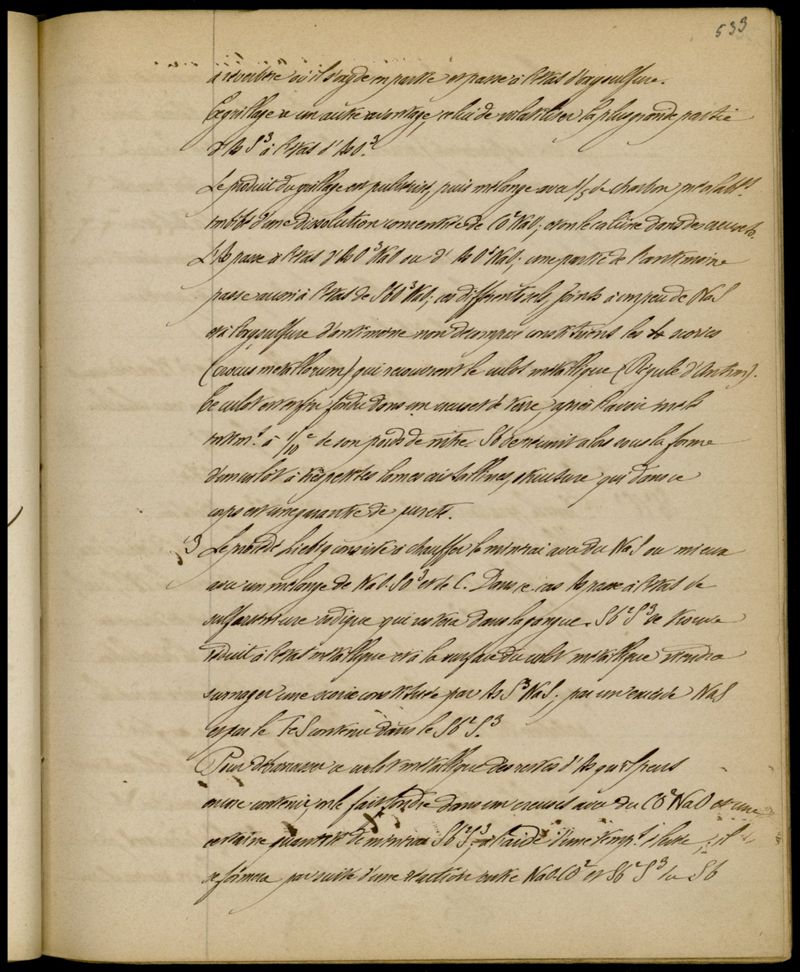 533
à réverbère où il s'oxyde en partie et passe à l'état d'oxysulfure.
Ce grillage a un autre avantage, celui de volatiliser la plus grande partie
d'As S³ à l'état d'AsO³.
Le produit du grillage est pulvérisé, puis mélangé avec 1/5 de charbon préalabt
imbibé d'une dissolution concentrée de CO²NaO; et on le calcine dans des creusets.
L'As passe à l'état d'AsO³NaO ou d'AsO⁵NaO; une partie de l'antimoine
passe aussi à l'état de SbO³NaO; ces différents sels, joints à un peu de NaS
et à l'oxysulfure d'antimoine non décomposé constituent les scories
(crocus metallorum) qui recouvrent le culot métallique (Régule d'Antim).
Ce culot est enfin fondu dans un creuset de terre, après l'avoir
à 1/10e de son poids de nitre. Sb se réunit alors sous la forme
d'un culot à très petites lames cristallines, structure qui dans ce
corps est une garantie de pureté.
3 Le procédé Liebig consiste à chauffer le minerai avec du NaS ou mieux
avec un mélange de NaO.SO³ et de C. Dans ce cas As passe à l'état de
sulfarséniure sodique qui restera dans la gangue. Sb²S³ se trouve
réduit à l'état métallique et à la surface du culot métallique viendra
surnager une scorie constituée par As S³NaS, par un excès de NaS
et par le FeS contenu dans le Sb²S³.
Pour débarrasser ce culot métallique des restes d'As qu'il peut
encore contenir, on le fait fondre dans un creuset avec du CO²NaO et une
certaine quantité de minerai Sb²S³ à l'aide d'une tempt élevée; il
se formera par suite d'une réaction entre NaO.CO² et Sb²S³ du Sb